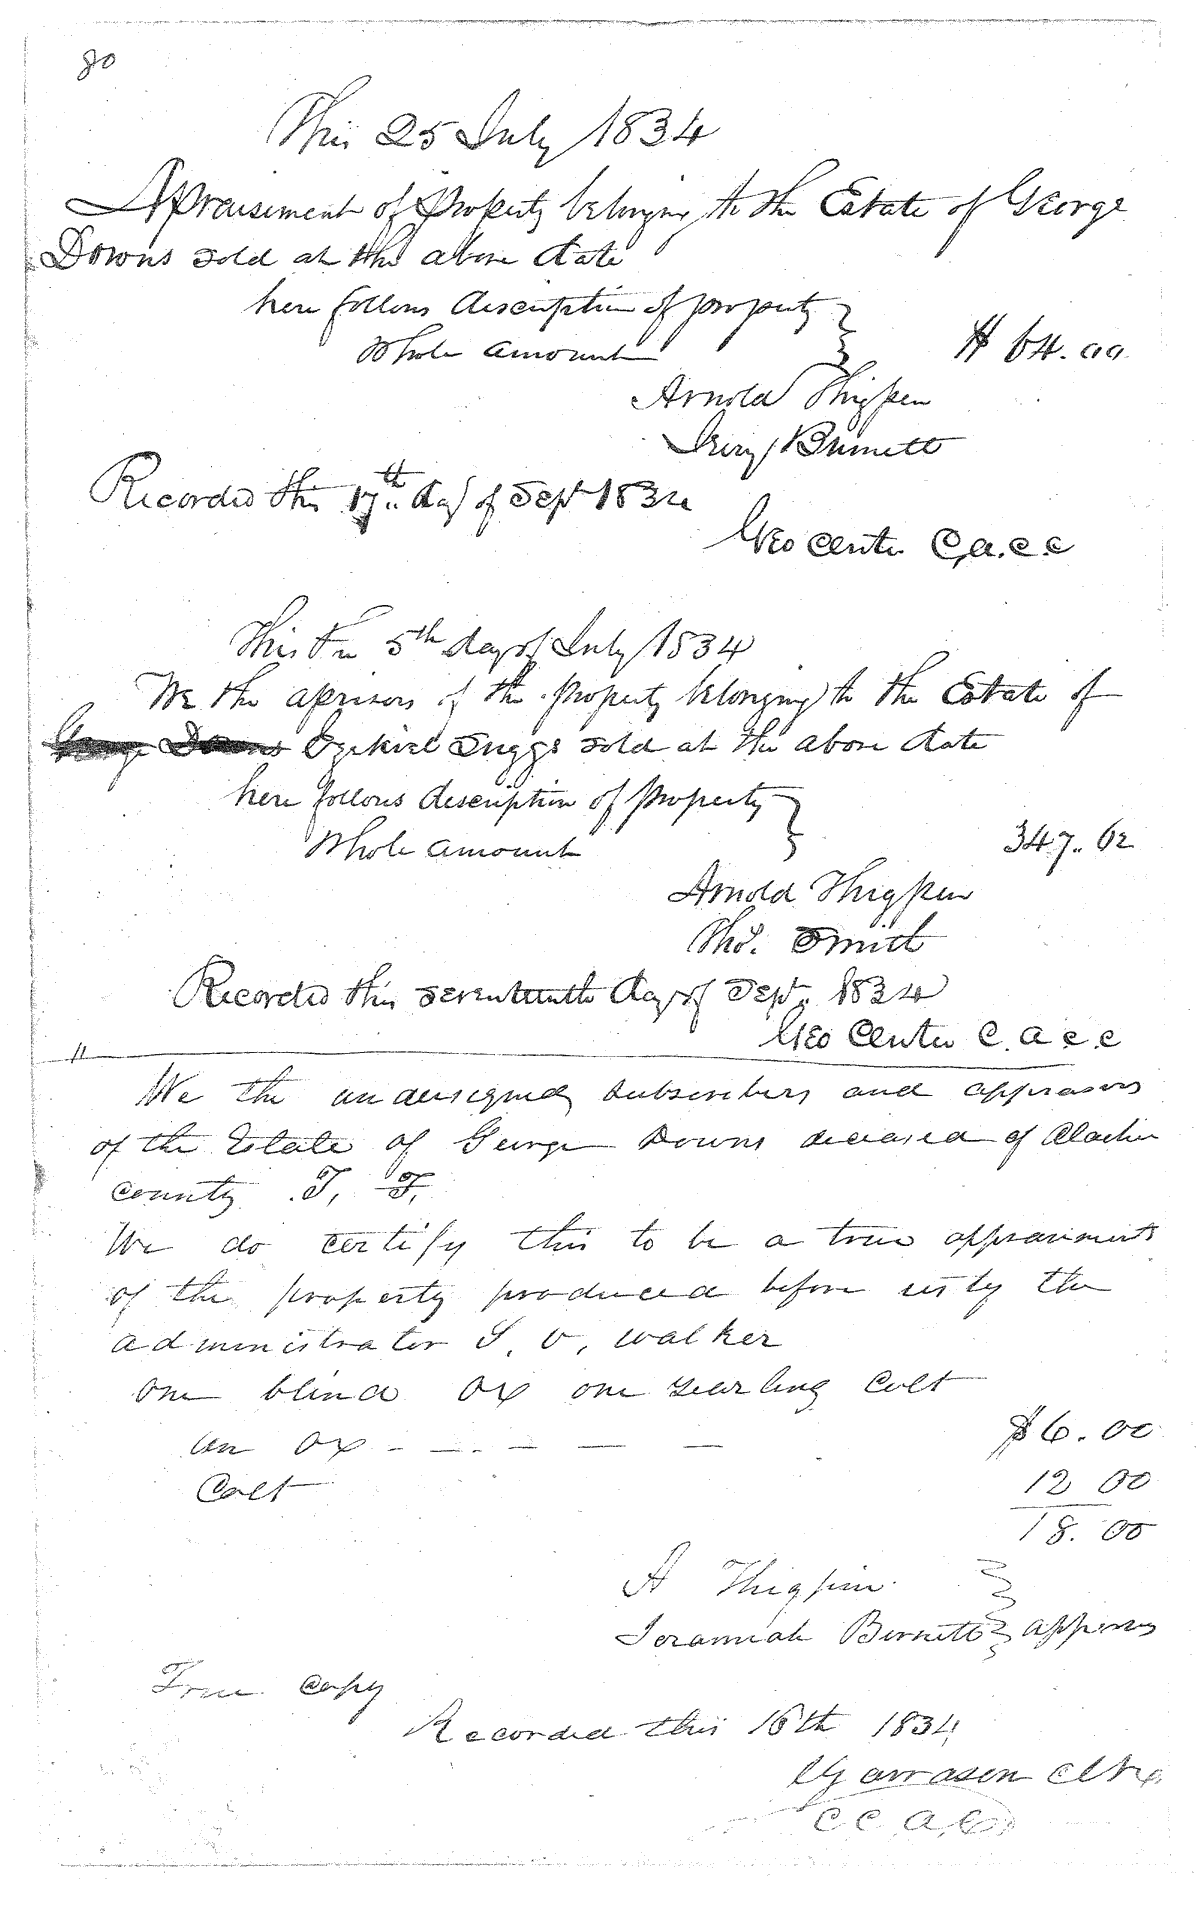 80
This 25 July 1834
Apraisement of Property belonging to the Estate of George
Downs sold at the above date
here follows description of property
Whole amount $ 64.00
Arnold Thigpen
Burnett
Recorded this 17th day of Sept 1834
Geo Center C,a.c c
This the 5th day of July 1834
We the aprisors of the property belonging to the Estate of
George Downs Ezekiel Suggs sold at the above date
here follows description of property
Whole amount 347.. 62
Arnold Thigpen
Thos. Smith
Recorded this Seventeenth day of Sept. 1834
Geo Center C. a c c
We the undersigned subscribers and apprasors
of the Estate of George Downs deceased of Alachu
county. T, F,
We do certify this to be a true appraiment
of the property produced before us by the
administrator S. V. walker
one blind ox one yearling Colt
an ox - - - - - $6.00
Colt 12 00
18.00
A Thigpin
Jeramiah Burnett apprasors
True copy
Recorded this 16th 1834
Garrason Clk
C C A C